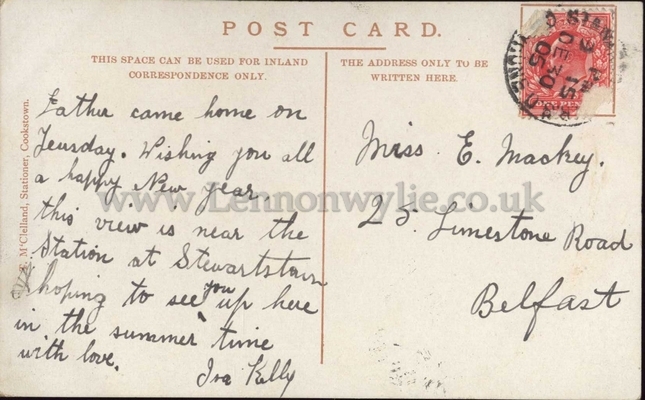 POST CARD.
THIS SPACE CAN BE USED FOR INLAND
CORRESPONDENCE ONLY.
THE ADDRESS ONLY TO BE
WRITTEN HERE.
M'Clelland, Stationer, Cookstown.
Father came home on
Teusday. Wishing you all
a happy New Year,
this view is near the
Station at Stewartstown
hoping to see you up here
in the summer time
with love.
Iva Kelly
Miss E. Mackey.
25. Limestone Road
Belfast
DE 30
05
ONE PENNY
www.Lennonwylie.co.uk